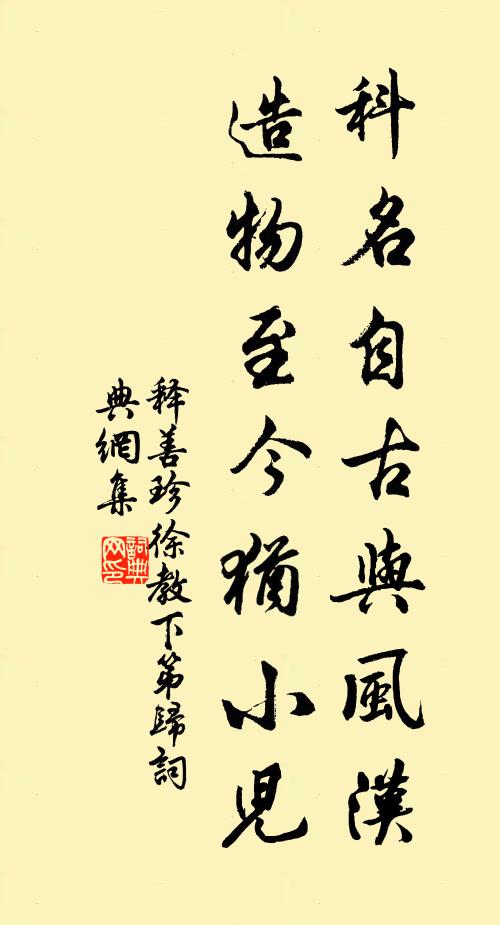 科名自古與風漢
造物至今猶小兒
释善珍徐教下第歸詞
典網集